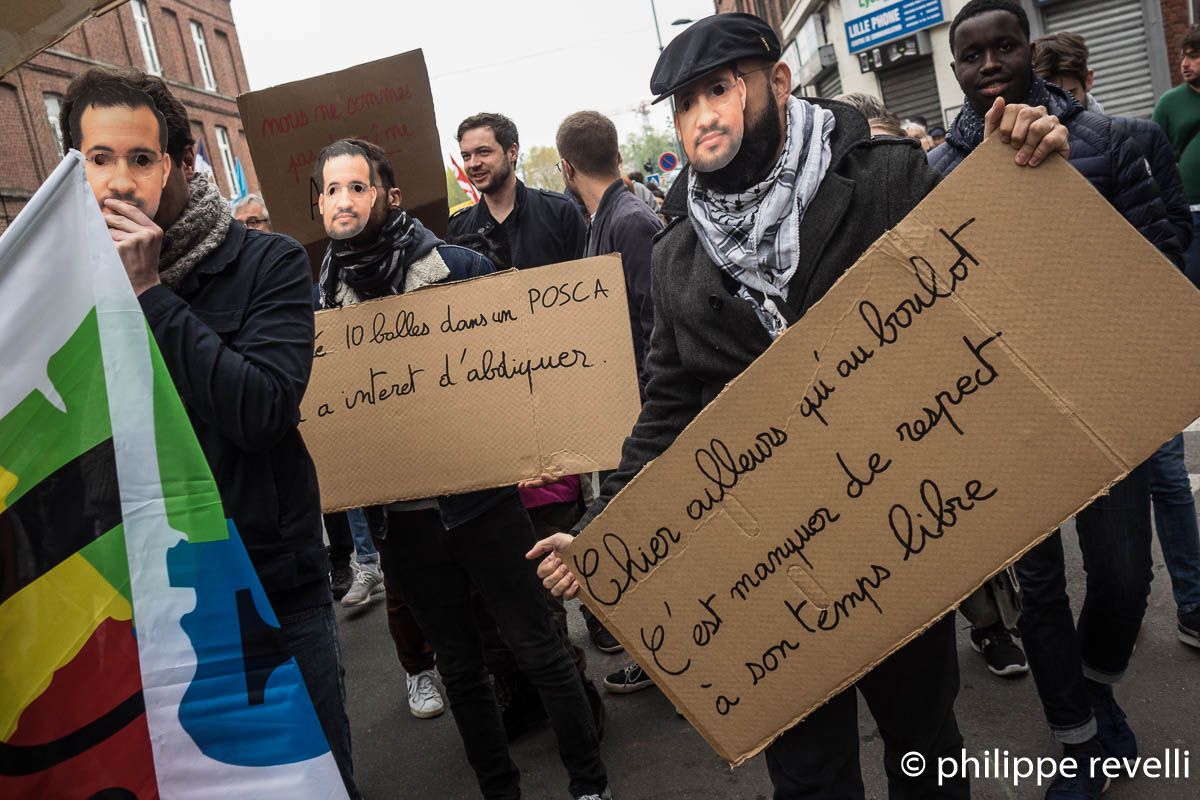 LILLE PHONE
nous ne sommes
pas
même
10 balles dans un POSCA
a interet d'abdiquer.
Chier ailleurs qu'au boulot
C'est manquer de respect
à son temps libre
© philippe revelli